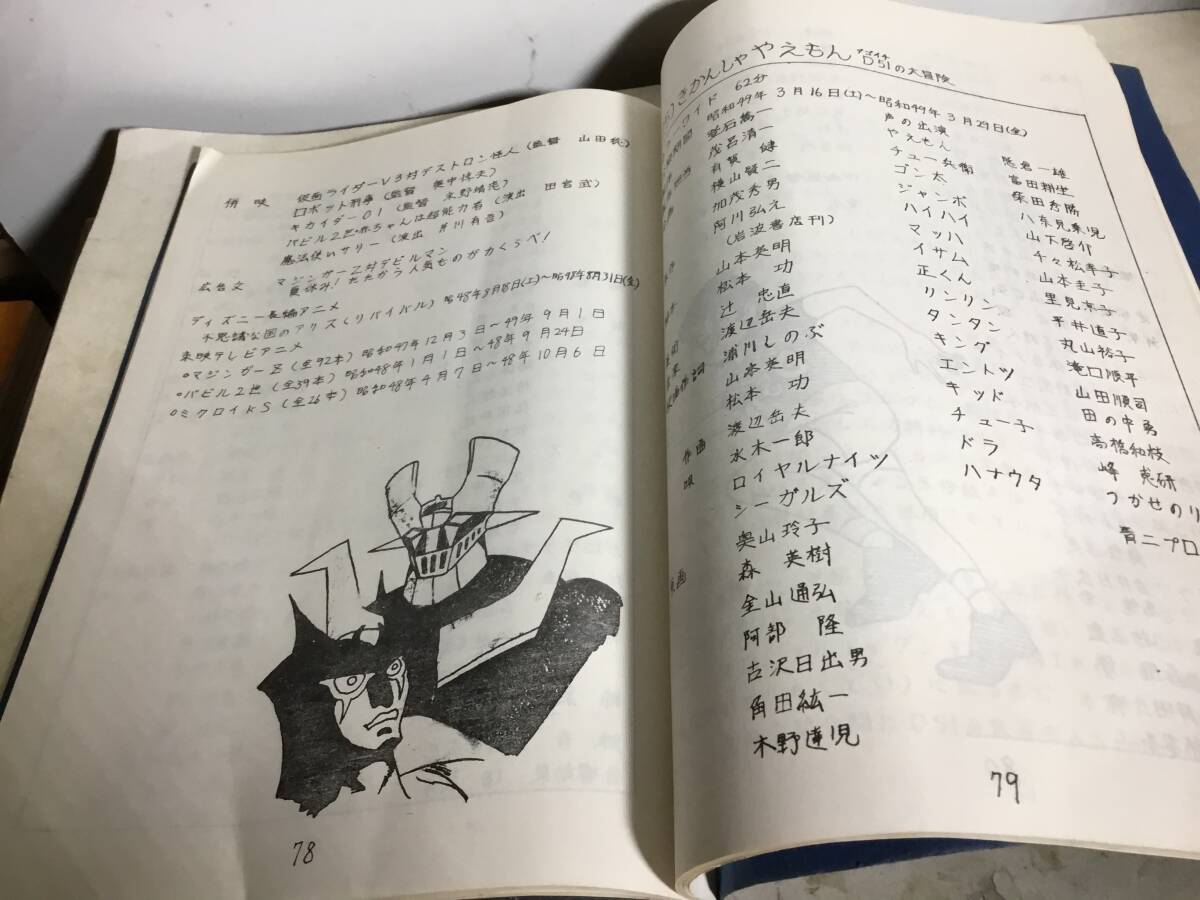 併映 仮面ライダーV3対デストロン怪人 (監督 山田稔)
ロボット刑事 (監督 奥中惇夫)
キカイダー01 (監督 永野靖忠)
バビル2世・赤ちゃんは超能力者 (演出 田宮武)
魔法使いサリー (演出 芹川有吾)
広告文 マジンガーZ対デビルマン
夏休み!たたかう人気ものが力くらべ!
ディズニー長編アニメ
不思議な国のアリス (リバイバル) 昭48年3月8日(土)〜昭48年8月31日(金)
東映テレビアニメ
○マジンガーZ (全92本) 昭和47年12月3日〜49年9月1日
○バビル2世 (全39本) 昭和48年1月1日〜48年9月24日
○ミクロイドS (全26本) 昭和48年4月7日〜48年10月6日
78
きかんしゃやえもん D51の大冒険
デゴイチ
62分
昭和49年3月16日(土)〜昭和49年3月29日(金)
登石雋一
茂呂清一
有賀健
横山賢二
加茂秀男
阿川弘之
(岩波書店刊)
山本英明
松本 功
辻 忠直
渡辺岳夫
浦川しのぶ
山本英明
松本 功
作画
渡辺岳夫
唄 水木一郎
ロイヤルナイツ
シーガルズ
奥山玲子
森 英樹
金山通弘
阿部 隆
古沢日出男
角田紘一
木野達児
声の出演
やえもん 熊倉一雄
チュー兵衛 富田耕生
ゴン太 柴田秀勝
ジャンボ 八奈見乗児
ハイハイ 山下啓介
マッハ 千々松幸子
イサム 山本圭子
正くん 里見京子
リンリン 平井道子
タンタン 丸山裕子
キング 滝口順平
エントツ 山田順司
キッド 田の中勇
チュー子 高橋和枝
ドラ 峰 恵研
ハナウタ つかせのり
青二プロ
79